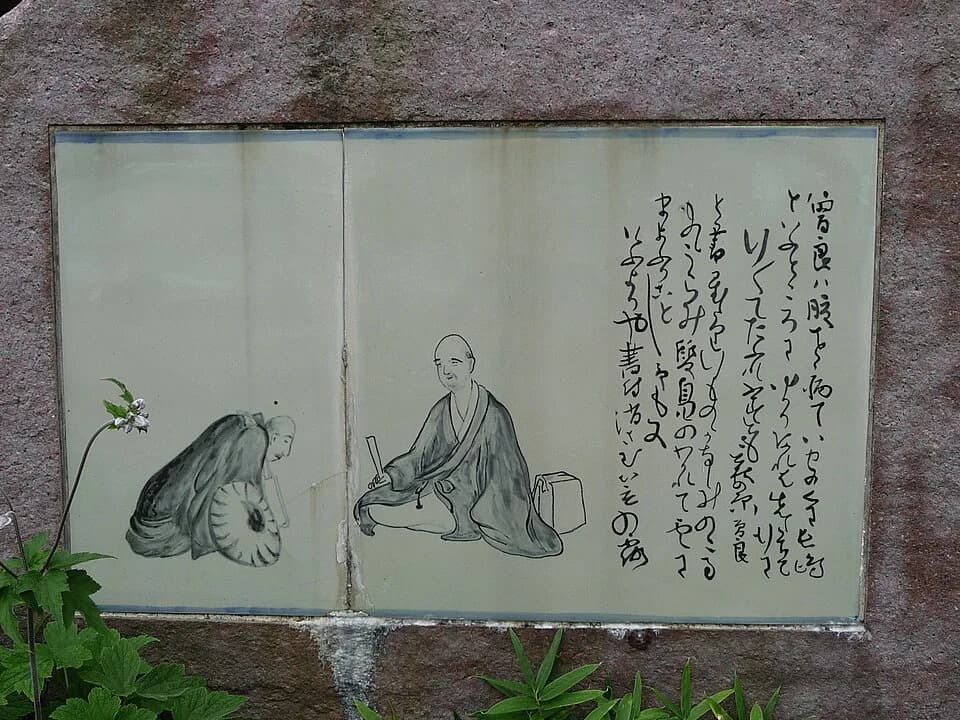 曽良ハ腹を病ていせのくに長嶋
といふところにゆかりあれハ先立て行に
行〳〵てたふれ伏とも萩の原 曽良
と書置たり行ものゝかなしみのこる
ものゝうらみ雙鳧のわかれて
まよふかことし予も又
けふよりや書付消さむ笠の露